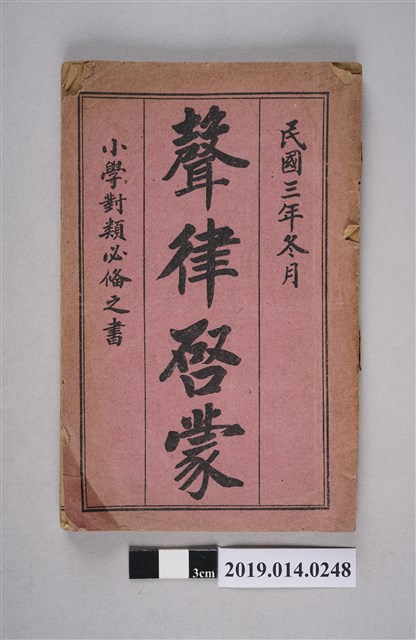 民國三年冬月
聲律啓蒙
小學對類必俻之書
3cm
2019.014.0248